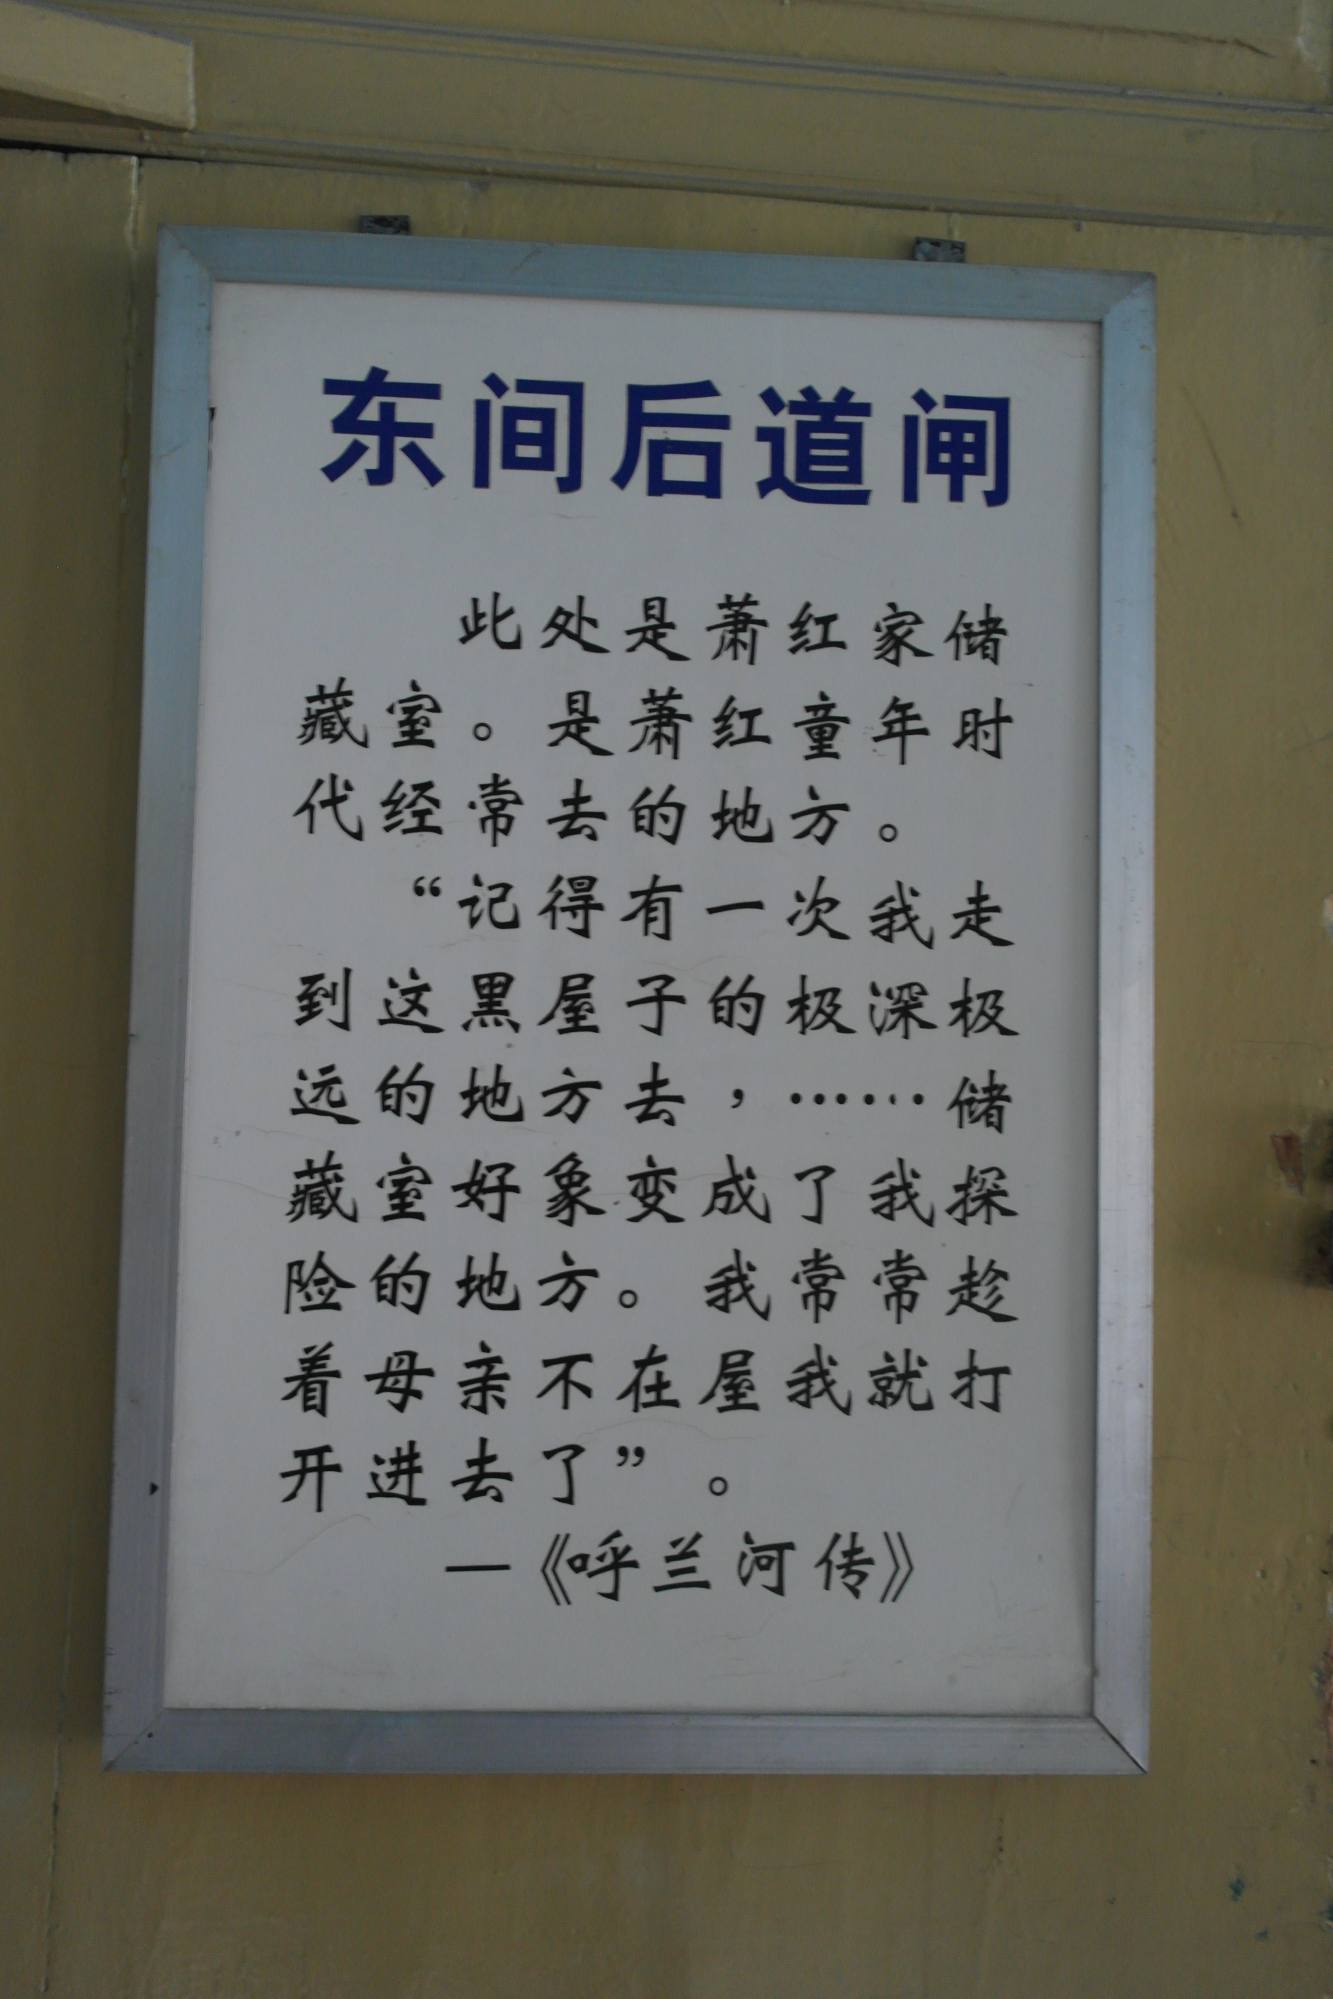 东间后道闸
此处是萧红家储
藏室。是萧红童年时
代经常去的地方。
“记得有一次我走
到这黑屋子的极深极
远的地方去，……储
藏室好象变成了我探
险的地方。我常常趁
着母亲不在屋我就打
开进去了”。
—《呼兰河传》